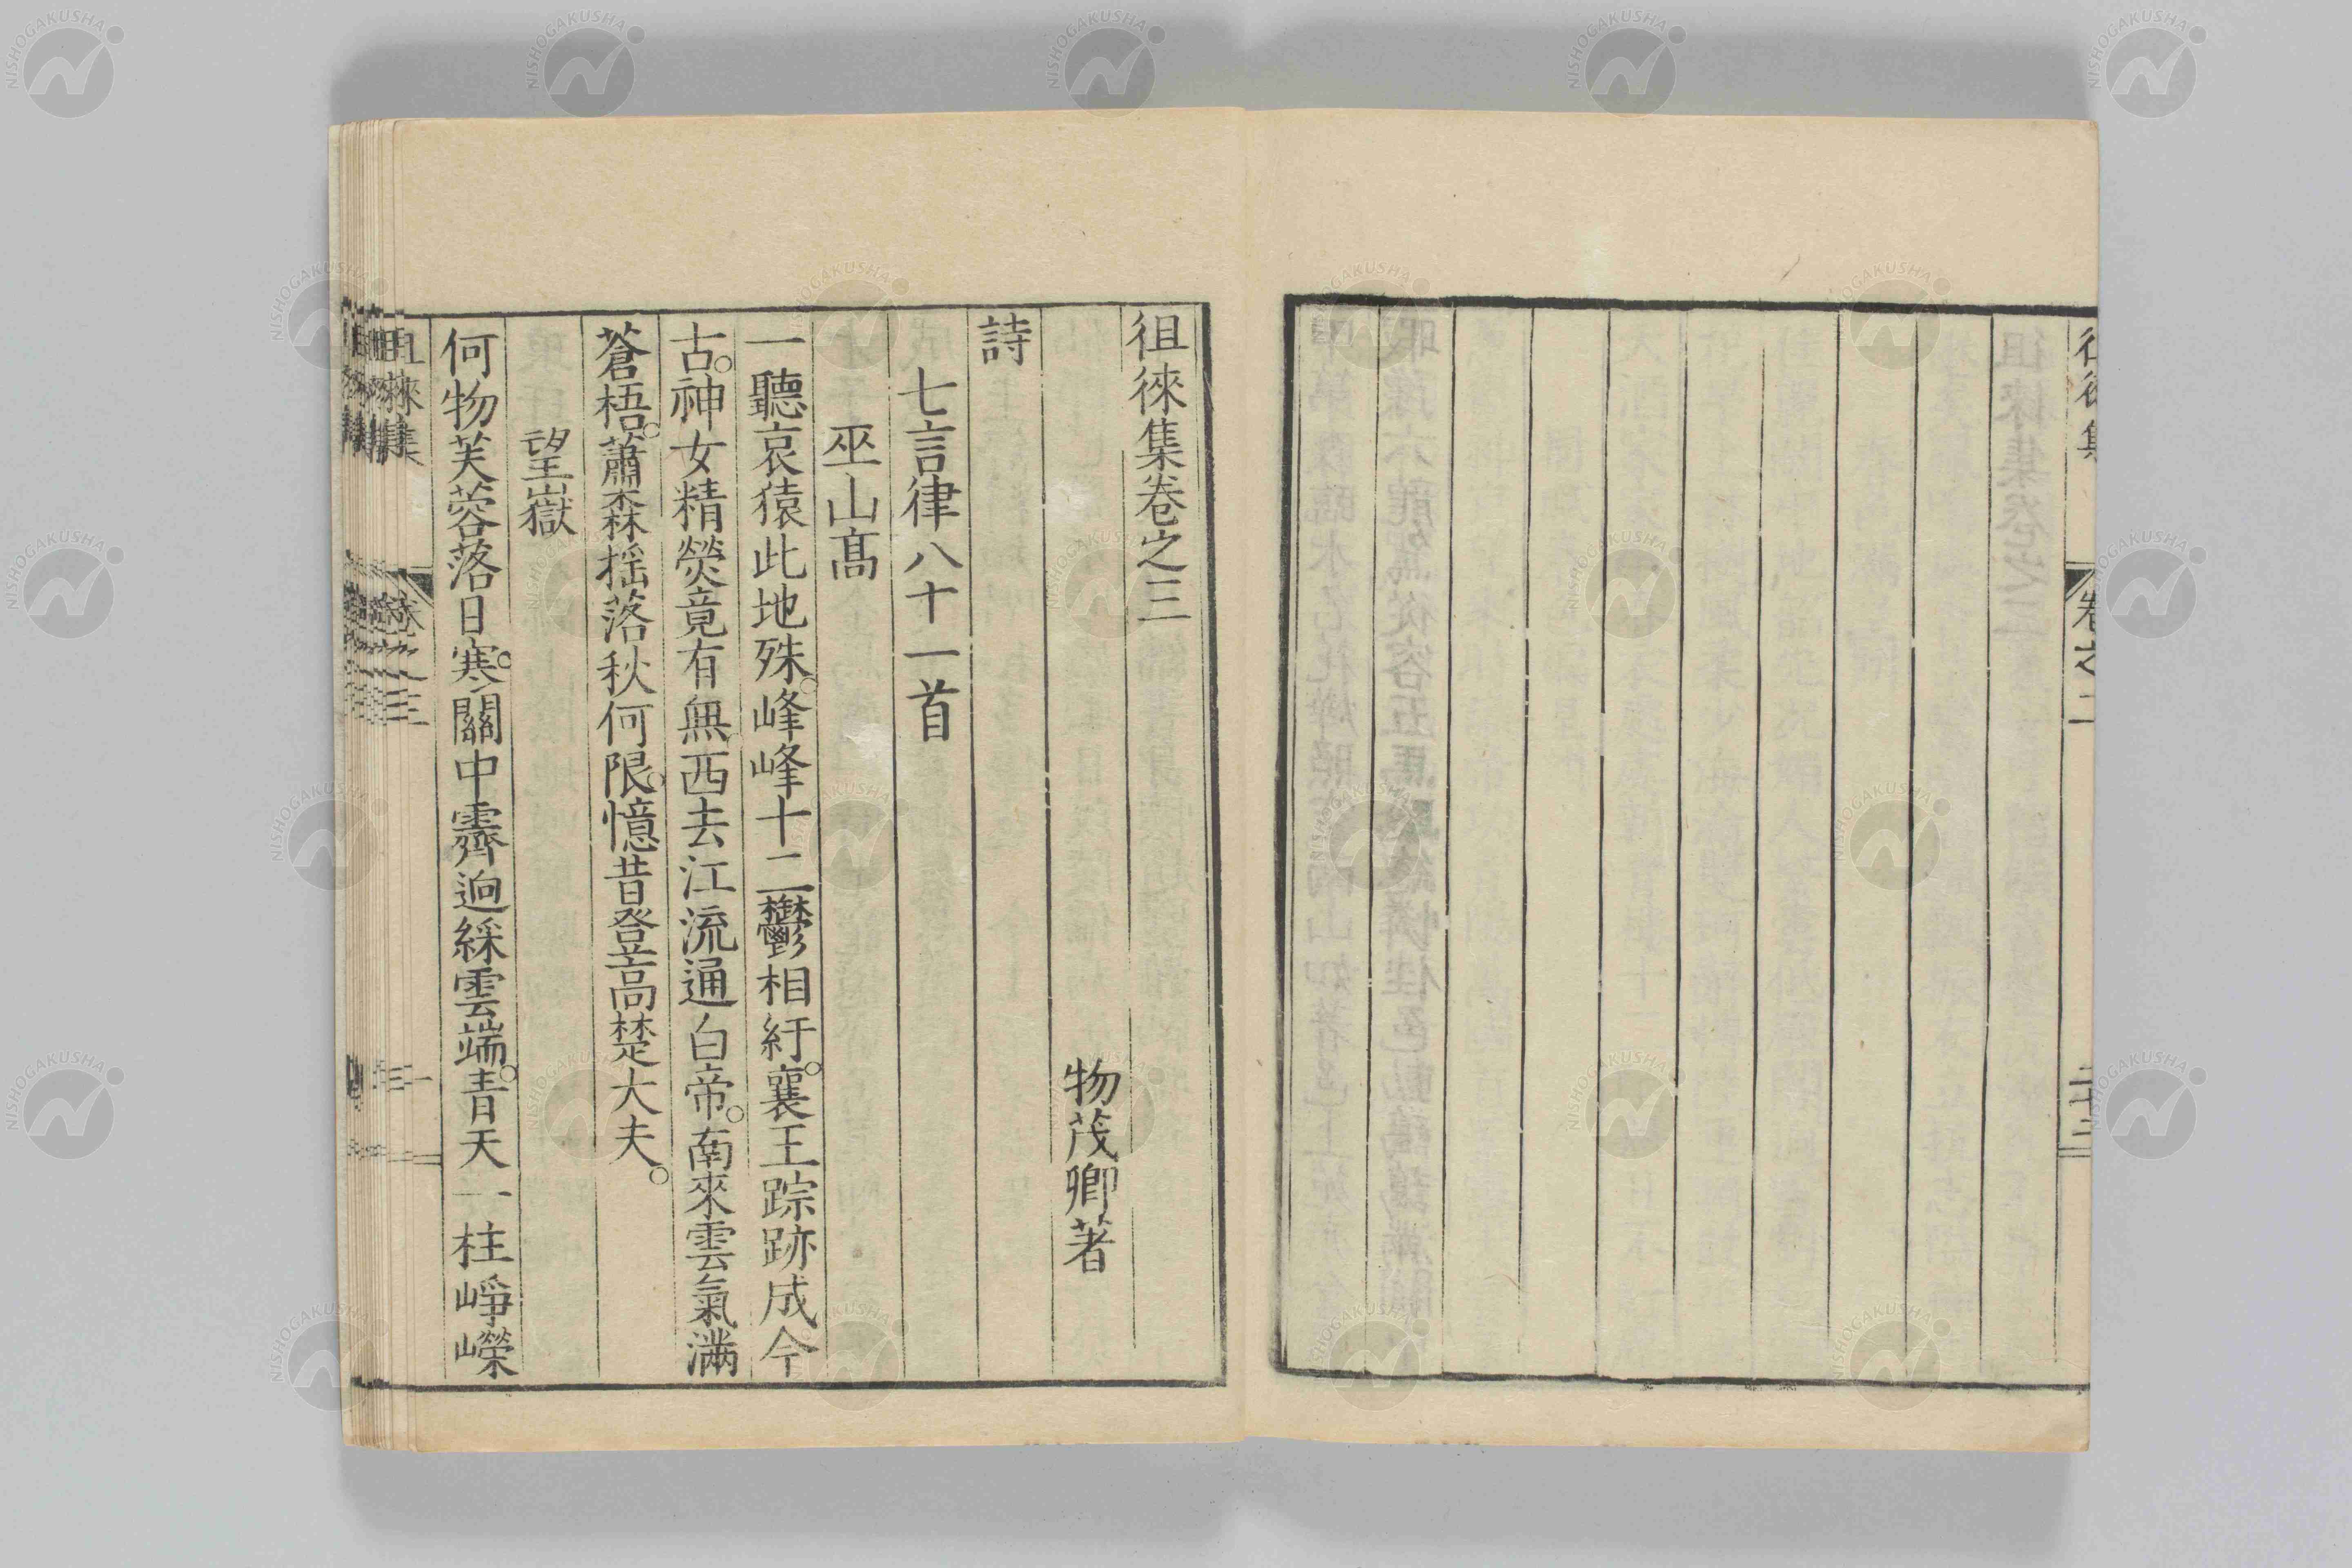 徂徠集卷之三
物茂卿著
詩
七言律八十一首
巫山高
一聽哀猿此地殊。峰峰十二鬱相紆。襄王踪跡成今
古。神女精熒竟有無。西去江流通白帝。南來雲氣滿
蒼梧。蕭森搖落秋何限。憶昔登高楚大夫。
望嶽
何物芙蓉落日寒。關中霽迥綵雲端。青天一柱崢嶸
卷之二
二十二
NISHOGAKUSHA